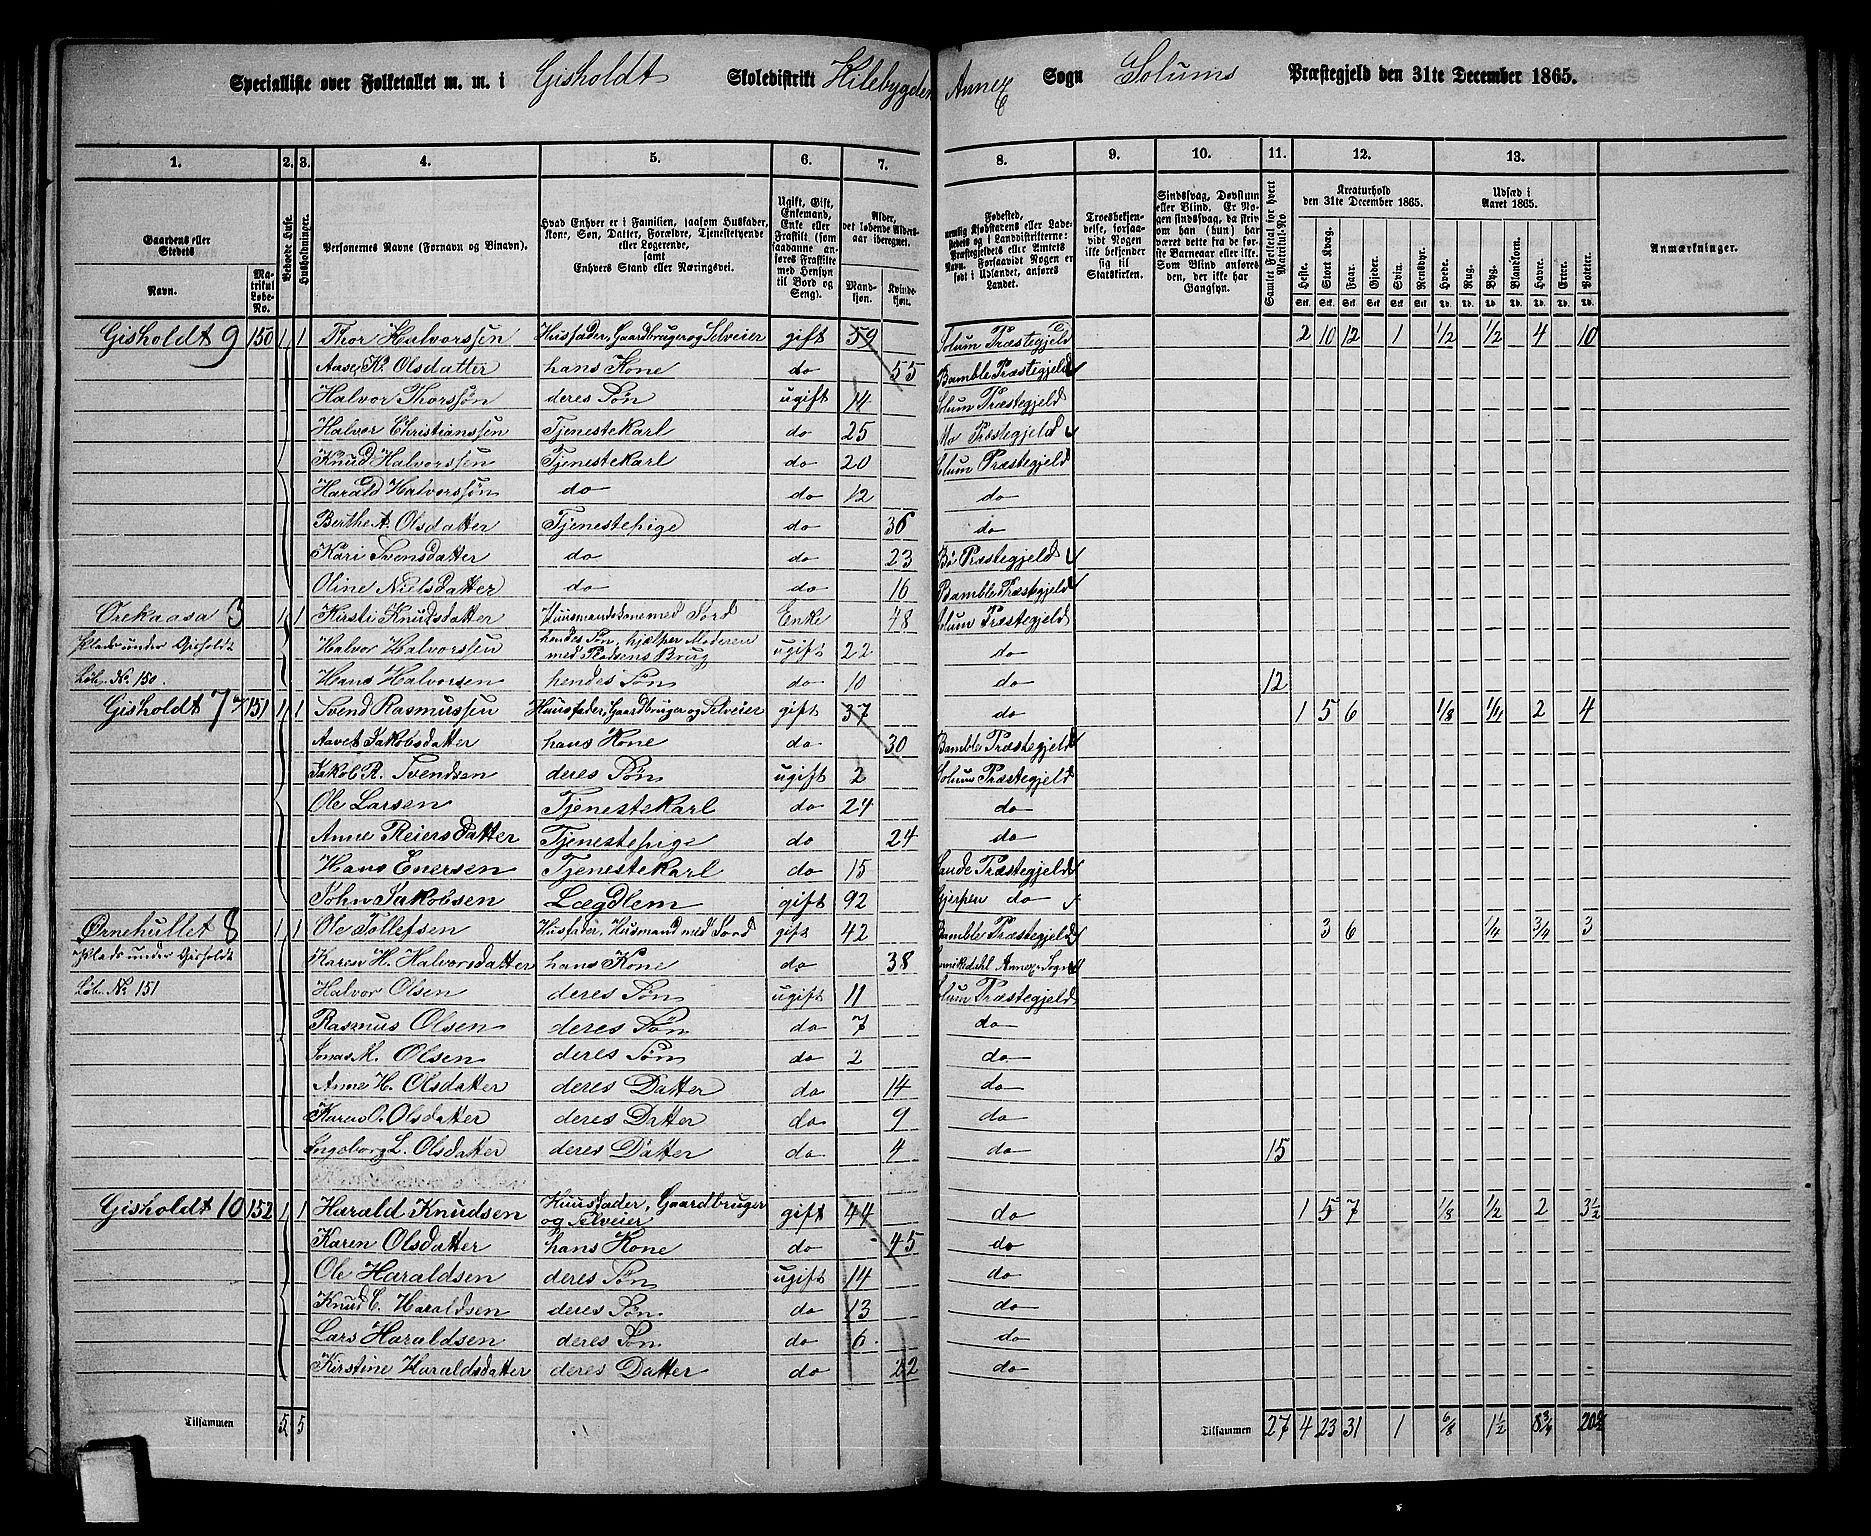 Specialliste over Folketallet m. m. i Gisholdt Skoledistrikt Hilebygden Annex Sogn Solums Præstegjeld den 31te December 1865.
1. 2. 3. 4. 5. 6. 7. 8. 9. 10. 11. 12. 13.
Gaardens eller Stedets Navn. Matrikul Løbe-No. Beboede Huse. Husholdninger. Personernes Navne (Fornavn og Binavn). Hvad Enhver er i Familien, saasom Husfader, Kone, Søn, Datter, Forældre, Tjenestetyende eller Logerende, samt Enhvers Stand eller Næringsvei. Ugift, Gift, Enkemand, Enke eller Fraskilt (som saadanne anføres Fraskilte med Hensyn til Bord og Seng). Alder, det løbende Aldersaar iberegnet. Mandkjøn. Kvindekjøn.
Fødested, nemlig Kjøbstadens eller Ladestedets og i Landdistrikterne: Præstegjeldets eller Amtets Navn. Forsaavidt Nogen er født i Udlandet, anføres Landet. Troesbekjendelse, forsaavidt Nogen ikke bekjender sig til Statskirken. Sindssvag, Døvstum eller Blind. Er Nogen sindssvag, da skriv om han (hun) har været dette fra de første Barneaar eller ikke. Som Blind anføres den, der ikke har Gangsyn. Samlet Folketal for hvert Matrikul-No. Kreaturhold den 31te December 1865. Heste. Stort Kvæg. Faar. Gjeder. Svin. Rensdyr. Udsæd i Aaret 1865. Hvede. Rug. Byg. Blandkorn. Havre. Erter. Poteter. Anmærkninger.
Gisholdt 9 150 1 1 Thor Halvorssen Husfader, Gaardbruger og Selveier gift 59 Solum Præstegjeld 2 10 12 1 1/2 1/2 4 10
Aase K. Olsdatter hans Kone do 55 Bamble Præstegjeld
Halvor Thorssøn deres Søn ugift 14 Solum Præstegjeld
Halvor Christianssen Tjenestekarl do 25 Mo Præstegjeld
Knud Halvorssen Tjenestekarl do 20 Solum Præstegjeld
Harald Halvorssøn do do 12 do
Berthe A. Olsdatter Tjenestepige do 36 do
Kari Svensdatter do do 23 Bö Præstegjeld
Oline Nielsdatter do do 16 Bamble Præstegjeld
Orekaasa 3 1 1 Kirsti Knudsdatter Huusmandskone med Jord Enke 48 Solum Præstegjeld
Plads under Gisholdt Halvor Halvorssen hendes Søn, hjælper Moderen med Pladsens Brug ugift 22 do
Løb. No. 150. Hans Halvorsen hendes Søn do 10 do 12
Gisholdt 7 151 1 1 Svend Rasmussen Huusfader, Gaardbruger og Selveier gift 37 do 1 5 6 1/8 1/4 2 4
Aavet Jakobsdatter hans Kone do 30 Bamble Præstegjeld
Jakob R. Svendsen deres Søn ugift 2 Solum Præstegjeld
Ole Larsen Tjenestekarl do 24 do
Anne Reiersdatter Tjenestepige do 24 do
Hans Enersen Tjenestekarl do 15 Sande Præstegjeld
John Jakobsen Lægdlem gift 92 Gjerpen do
Ørnehullet 8 1 1 Ole Tollefsen Husfader, Husmand med Jord gift 42 Bamble Præstegjeld 3 6 1/4 3/4 3
Plads under Gisholdt Karen H. Halvorsdatter hans Kone do 38 Annex-Sogn
Løb. No. 151 Halvor Olsen deres Søn ugift 11 Solum Præstegjeld
Rasmus Olsen deres Søn do 7 do
Jonas M. Olsen deres Søn do 2 do
Anne H. Olsdatter deres Datter do 14 do
Karen O. Olsdatter deres Datter do 9 do
Ingeborg L. Olsdatter deres Datter do 4 do 15
Gisholdt 10 152 1 1 Harald Knudsen Huusfader, Gaardbruger og Selveier gift 44 do 1 5 7 1/8 1/2 2 3 1/2
Karen Olsdatter hans Kone do 45 do
Ole Haraldsen deres Søn ugift 14 do
Knud C. Haraldsen deres Søn do 13 do
Lars Haraldsen deres Søn do 6 do
Kirstine Haraldsdatter deres Datter do 22 do
Tilsammen 5 5 Tilsammen 27 4 23 31 1 6/8 1 1/2 8 3/4 20 1/2